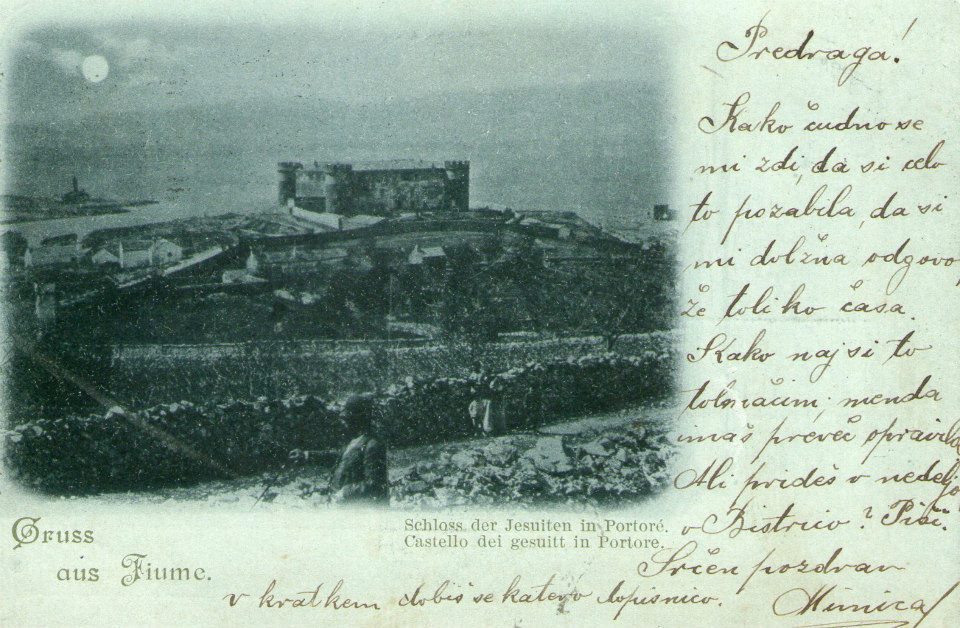 Predraga!
Kako čudno se
mi zdi, da si celo
to pozabila, da si
mi dolžna odgovo
že toliko časa.
Kako naj si to
tolmačim, menda
imaš preveč opravila
Ali prideš v nedeljo
v Bistrico? Piši.
Srčen pozdrav
Mimica
v kratkem dobiš se katero dopisnico.
Gruss
aus Fiume.
Schloss der Jesuiten in Portoré.
Castello dei gesuitt in Portore.